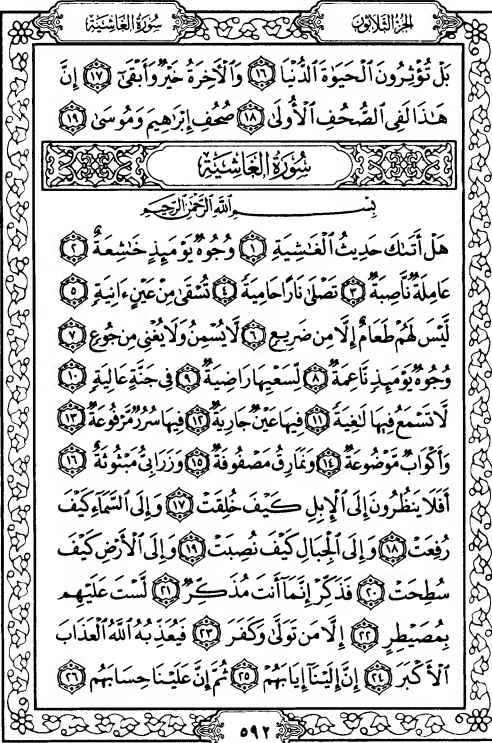 سُورَةُ الغَاشِيَةِ الجُزءُ الثَّلَاثُونَ
بَلْ تُؤْثِرُونَ ٱلْحَيَوٰةَ ٱلدُّنْيَا ١٦ وَٱلْءَاخِرَةُ خَيْرٌ وَأَبْقَىٰٓ ١٧ إِنَّ
هَـٰذَا لَفِى ٱلصُّحُفِ ٱلْأُولَىٰ ١٨ صُحُفِ إِبْرَٰهِيمَ وَمُوسَىٰ ١٩
سُورَةُ الغَاشِيَةِ
بِسْمِ ٱللَّهِ ٱلرَّحْمَـٰنِ ٱلرَّحِيمِ
هَلْ أَتَىٰكَ حَدِيثُ ٱلْغَـٰشِيَةِ ١ وُجُوهٌ يَوْمَئِذٍ خَـٰشِعَةٌ ٢
عَامِلَةٌ نَّاصِبَةٌ ٣ تَصْلَىٰ نَارًا حَامِيَةً ٤ تُسْقَىٰ مِنْ عَيْنٍ ءَانِيَةٍ ٥
لَّيْسَ لَهُمْ طَعَامٌ إِلَّا مِن ضَرِيعٍ ٦ لَّا يُسْمِنُ وَلَا يُغْنِى مِن جُوعٍ ٧
وُجُوهٌ يَوْمَئِذٍ نَّاعِمَةٌ ٨ لِّسَعْيِهَا رَاضِيَةٌ ٩ فِى جَنَّةٍ عَالِيَةٍ ١٠
لَّا تَسْمَعُ فِيهَا لَـٰغِيَةً ١١ فِيهَا عَيْنٌ جَارِيَةٌ ١٢ فِيهَا سُرُرٌ مَّرْفُوعَةٌ ١٣
وَأَكْوَابٌ مَّوْضُوعَةٌ ١٤ وَنَمَارِقُ مَصْفُوفَةٌ ١٥ وَزَرَابِىُّ مَبْثُوثَةٌ ١٦
أَفَلَا يَنظُرُونَ إِلَى ٱلْإِبِلِ كَيْفَ خُلِقَتْ ١٧ وَإِلَى ٱلسَّمَآءِ كَيْفَ
رُفِعَتْ ١٨ وَإِلَى ٱلْجِبَالِ كَيْفَ نُصِبَتْ ١٩ وَإِلَى ٱلْأَرْضِ كَيْفَ
سُطِحَتْ ٢٠ فَذَكِّرْ إِنَّمَآ أَنتَ مُذَكِّرٌ ٢١ لَّسْتَ عَلَيْهِم
بِمُصَيْطِرٍ ٢٢ إِلَّا مَن تَوَلَّىٰ وَكَفَرَ ٢٣ فَيُعَذِّبُهُ ٱللَّهُ ٱلْعَذَابَ
ٱلْأَكْبَرَ ٢٤ إِنَّ إِلَيْنَآ إِيَابَهُمْ ٢٥ ثُمَّ إِنَّ عَلَيْنَا حِسَابَهُم ٢٦
٥٩٢